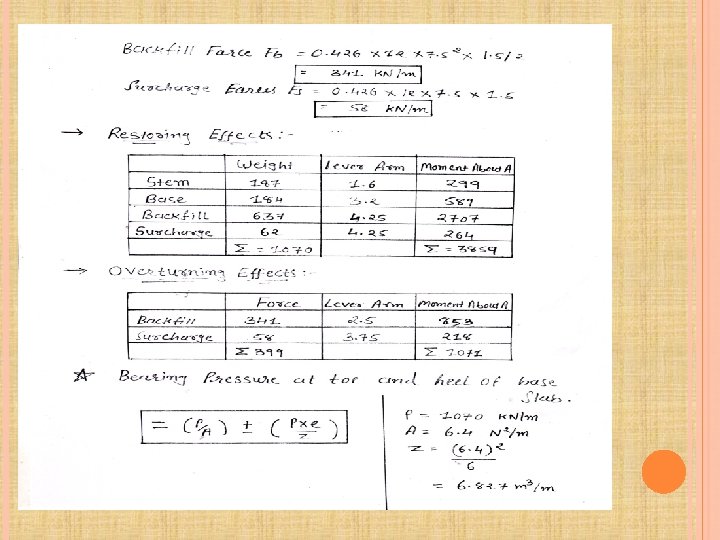 Backfill Force Fb = 0.426 x 18 x 7.5² x 1.5/2
= 341 KN/m
Surcharge Forces Fs = 0.426 x 18 x 7.5 x 1.5
= 58 KN/m
→ Restoring Effects:-
Weight Lever Arm Moment About A
Stem 187 1.6 299
Base 184 3.2 589
Backfill 637 4.25 2707
Surcharge 62 4.25 264
Σ = 1070 Σ = 3859
→ Overturning Effects:-
Force Lever Arm Moment About A
Backfill 341 2.5 853
Surcharge 58 3.75 218
Σ 399 Σ 1071
☆ Bearing Pressure at toe and heel of base
Slab.
= (P/A) ± (Pxe/Z)
P = 1070 KN/m
A = 6.4 N²/m
Z = (6.4)²
6
= 6.827 m³/m